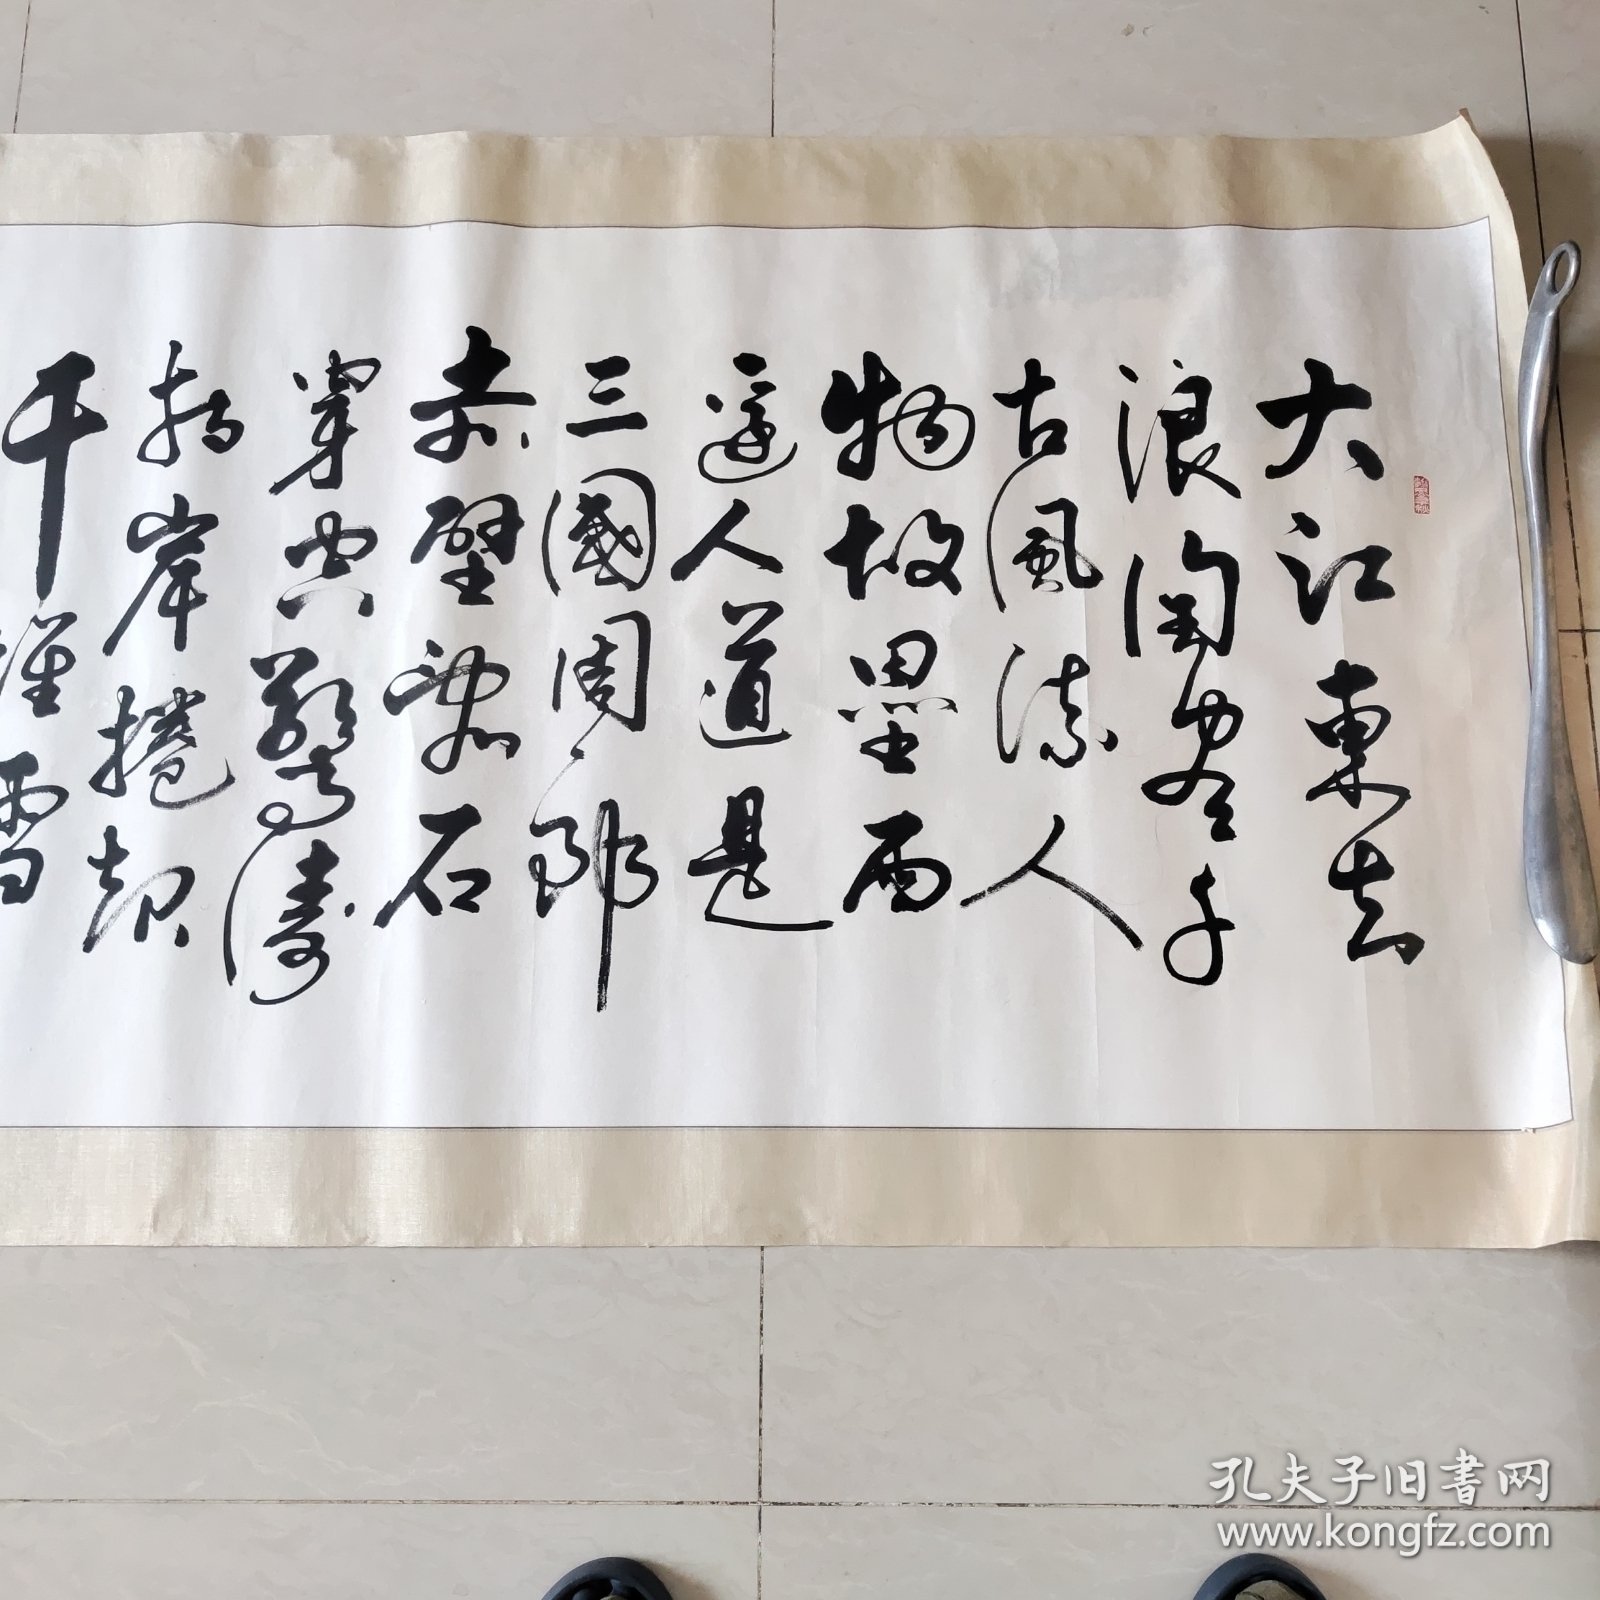 大江東去
浪淘盡千
古風流人
物故壘西
邊人道是
三國周郎
赤壁亂石
穿空驚濤
拍岸捲起
千堆雪
孔夫子旧書网
www.kongfz.com